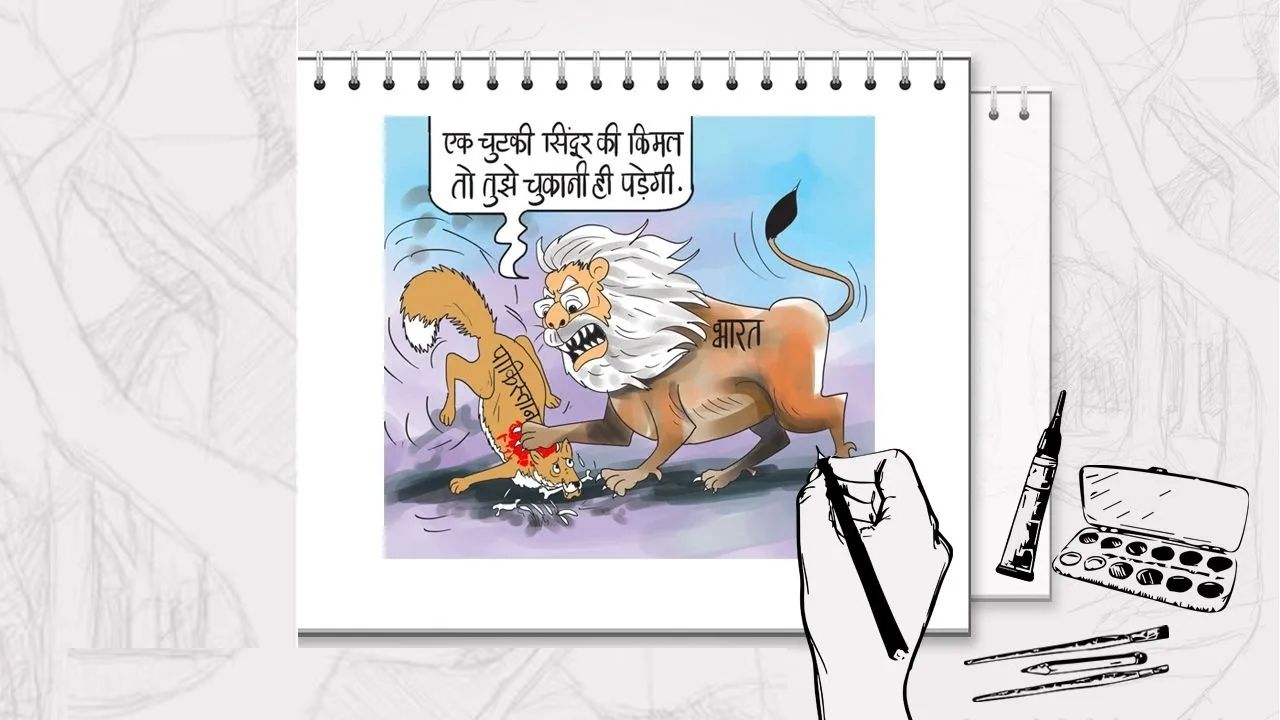 एक चुटकी सिंदूर की किमत
तो तुझे चुकानी ही पड़ेगी.
भारत
पाकिस्तान